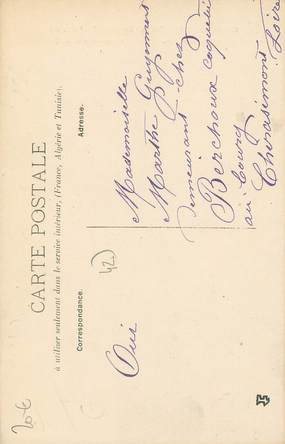 CARTE POSTALE
à utiliser seulement dans le service intérieur, (France, Algérie et Tunisie).
Correspondance.
Adresse.
42
Oui
Mademoiselle
Marthe Guyonnet
demeurant chez
Berchoux coquetier
au bourg
Cherasimont
Loire
20€